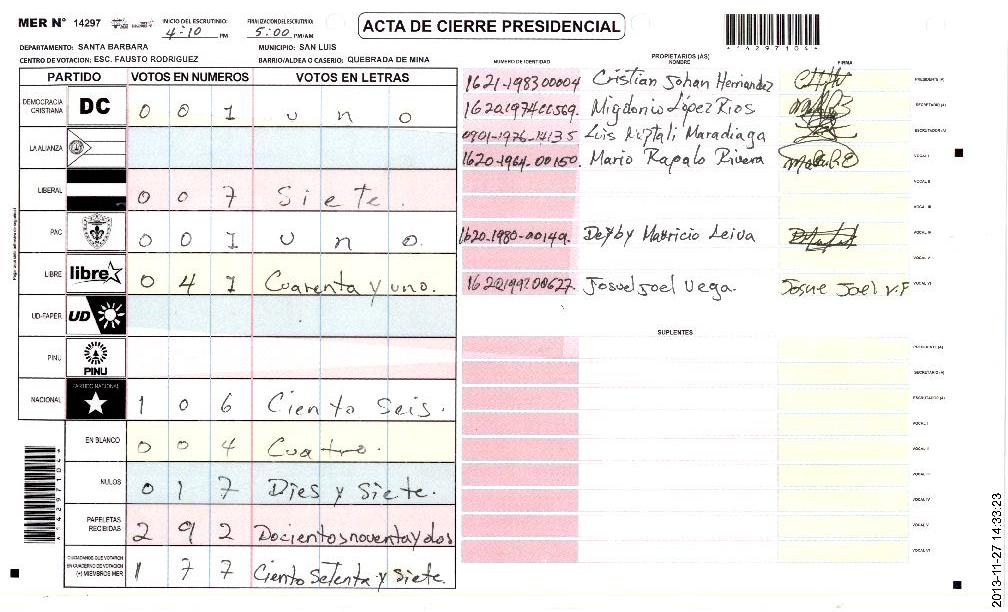 MER Nº 14297
INICIO DEL ESCRUTINIO: 4:10 PM
FINALIZACION DEL ESCRUTINIO: 5:00 PM/AM
ACTA DE CIERRE PRESIDENCIAL
DEPARTAMENTO: SANTA BARBARA
MUNICIPIO: SAN LUIS
CENTRO DE VOTACION: ESC. FAUSTO RODRIGUEZ
BARRIO/ALDEA O CASERIO: QUEBRADA DE MINA
PARTIDO VOTOS EN NUMEROS VOTOS EN LETRAS
DEMOCRACIA CRISTIANA DC 0 0 1 uno
LA ALIANZA
LIBERAL 0 0 7 Siete.
PAC 0 0 1 uno.
LIBRE libre 0 4 1 Cuarenta y uno.
UD-FAPER UD
PINU PINU
NACIONAL PARTIDO NACIONAL 1 0 6 Ciento Seis.
EN BLANCO 0 0 4 Cuatro.
NULOS 0 1 7 Dies y Siete.
PAPELETAS RECIBIDAS 2 9 2 Docientos noventa y dos
CIUDADANOS QUE VOTARON EN CUADERNO DE VOTACION (+) MIEMBROS MER 1 7 7 Ciento Setenta y Siete.
PROPIETARIOS (AS)
NUMERO DE IDENTIDAD NOMBRE FIRMA
1621-1983 00004 Cristian Johan Hernandez PRESIDENTE (A)
Migdonio López Rios SECRETARIO (A)
0901-1976-14135 Luis Maradiaga ESCRUTADOR (A)
1620-1964-00150. Mario Rapalo Rivera VOCAL I
VOCAL II
VOCAL III
1620-1980-00149. Deyby Mauricio Leiva VOCAL IV
VOCAL V
1620199200627. Josue Joel Vega. Josue Joel V.F VOCAL VI
SUPLENTES
PRESIDENTE (A)
SECRETARIO (A)
ESCRUTADOR (A)
VOCAL I
VOCAL II
VOCAL III
VOCAL IV
VOCAL V
VOCAL VI
2013-11-27 14:33:23